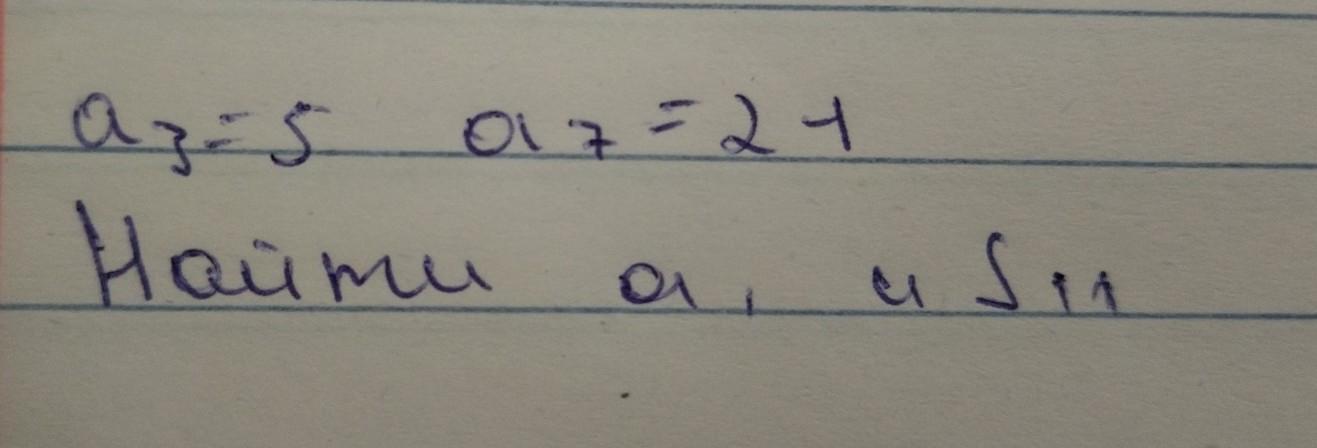 a₃=5 a₇=21
Найти a₁ и S₁₁